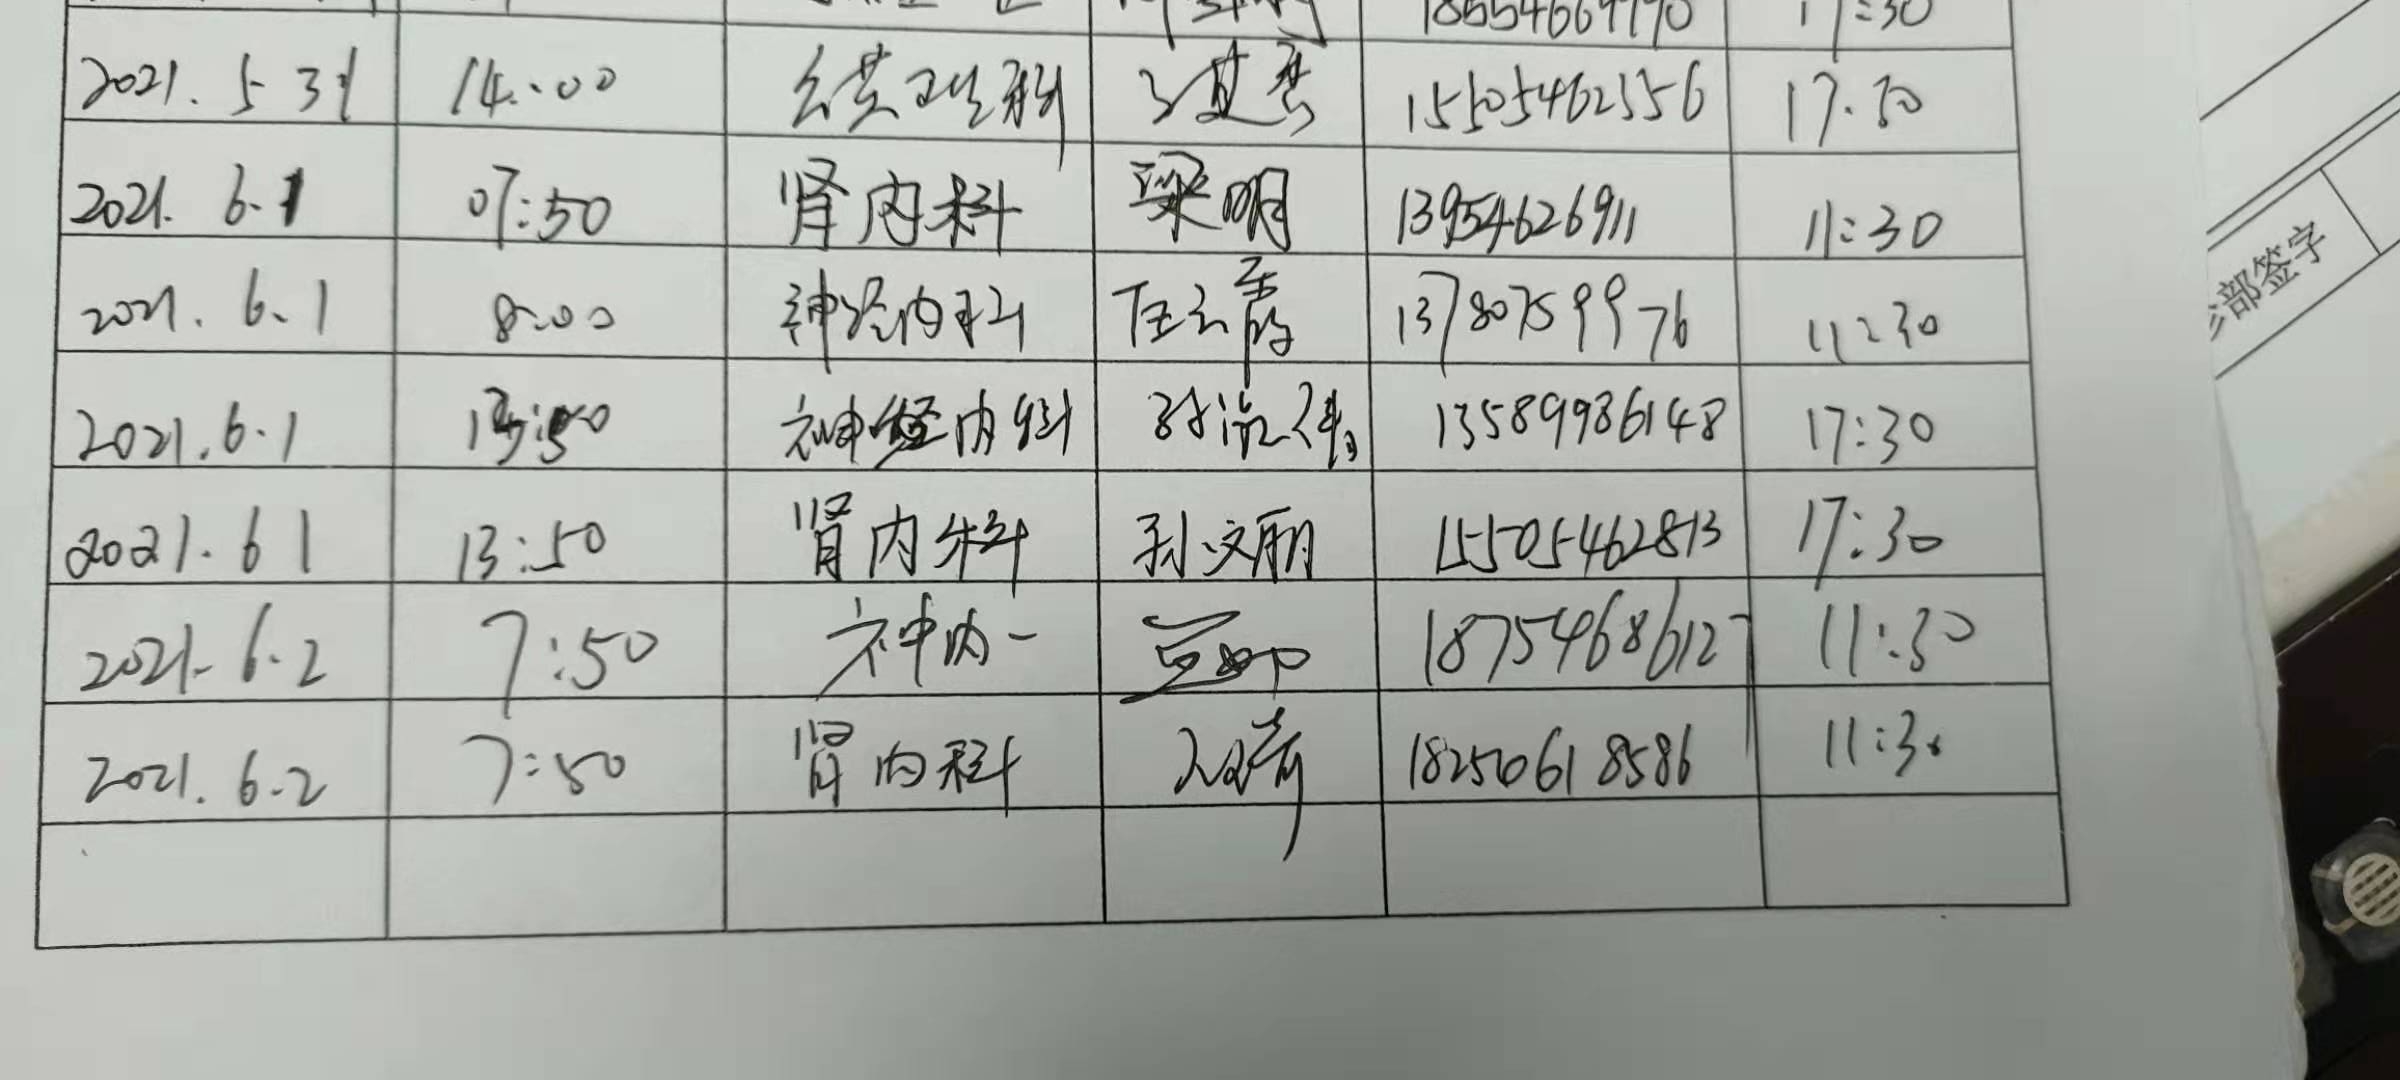 17:30
2021.5 31 14:00 15505462556 17.50
2021. 6.1 07:50 肾内科 梁明 13954626911 11:30
2021. 6.1 8:00 神经内科 任云霞 13780759976 11:30
2021.6.1 神经内科 13589986148 17:30
2021.6 1 13:50 肾内科 孙文丽 15505462813 17:30
2021.6.2 7:50 神内一 18754686127 11:30
2021.6.2 7:50 肾内科 18256618586 11:30
部签字